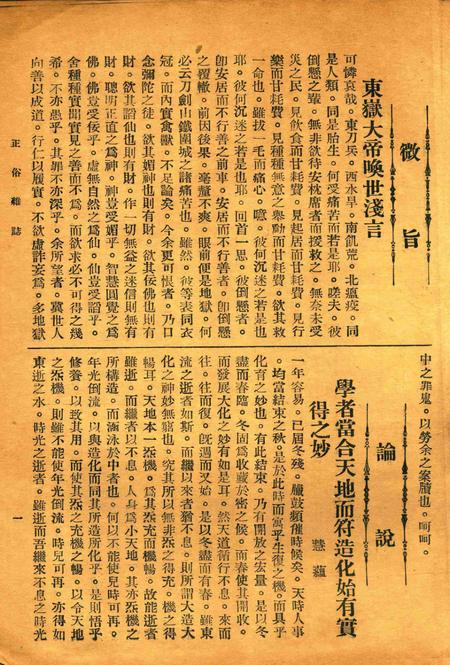 徵旨
東嶽大帝喚世淺言
可憐哀哉。東刀兵。西水旱。南飢荒。北瘟疫。同
是人類。同是胎生。何受痛苦而若是耶。嗟夫。彼
倒懸之輩。無非欲待安枕席者而援救之。無奈未受
災之民。見飲食而甘耗費。見起居而甘耗費。見行
樂而甘耗費。見種種無意之舉動而甘耗費。欲其救
一命也。雖拔一毛而痛心。噫。彼何沉迷之若是也
耶。彼何沉迷之若是也耶。回首一思。彼倒懸者。
卽安居而不行善之前車。安居而不行善者。卽倒懸
之覆轍。前因後果。毫釐不爽。眼前便是地獄。何
必云刀劍山鐵圍城之諸痛苦也。雖然。彼等表同衣
冠。而內實禽獸。不足論矣。今余更可恨者。乃口
念彌陀之徒。欲其媚神也則有財。欲其佞佛也則有
財。欲其諂仙也則有財。作一切無益之迷信則無有
財。聰明正直之爲神。神豈受媚乎。智慧圓覺之爲
佛。佛豈受佞乎。虛無自然之爲仙。仙豈受諂乎。
舍種種實聞實見之善而不爲。而欲求必不可得之殘
希。不亦愚乎。其罪不亦深乎。余所望者。冀世人
向善以成道。行仁以履實。不欲虛詐妄爲。多地獄
正俗雜誌
一
中之罪鬼。以勞余之案牘也。呵呵。
論說
學者當合天地而符造化始有實
得之妙
慧蘊
一年容易。已屆冬殘。臘鼓頻催時候矣。天時人事
。均當結束之秋。是於此時而寓乎生復之機。而具乎
化育之妙也。有此結束。乃有開放之宏量。是以冬
盡而春臨。冬固爲收藏於密之候。而春使其開收。
而發展大化之妙有如是耳。然天道循行不息。來而
往。往而復。旣週而又始。是以冬盡而有春。雖東
流之逝者如斯。而繼以來者猶不息。則所謂大造大
化之神妙無窮也。究其所以無非炁之得充。機之得
暢耳。天地本一炁機。爲其炁充而機暢。故能逝者
雖逝。而繼者以不息。人身爲小天地。其亦炁機之
所構造。而涵泳於中者也。何以不能使兒時可再。
年光倒流。以與造化而同其所造所化乎。是則悟乎
修養。以致其用。而使其炁之充機之暢。以合天地
之炁機。則雖不能使年光倒流。時兒可再。亦得如
東逝之水。時光之逝者。雖逝而吾繼來不息之時光